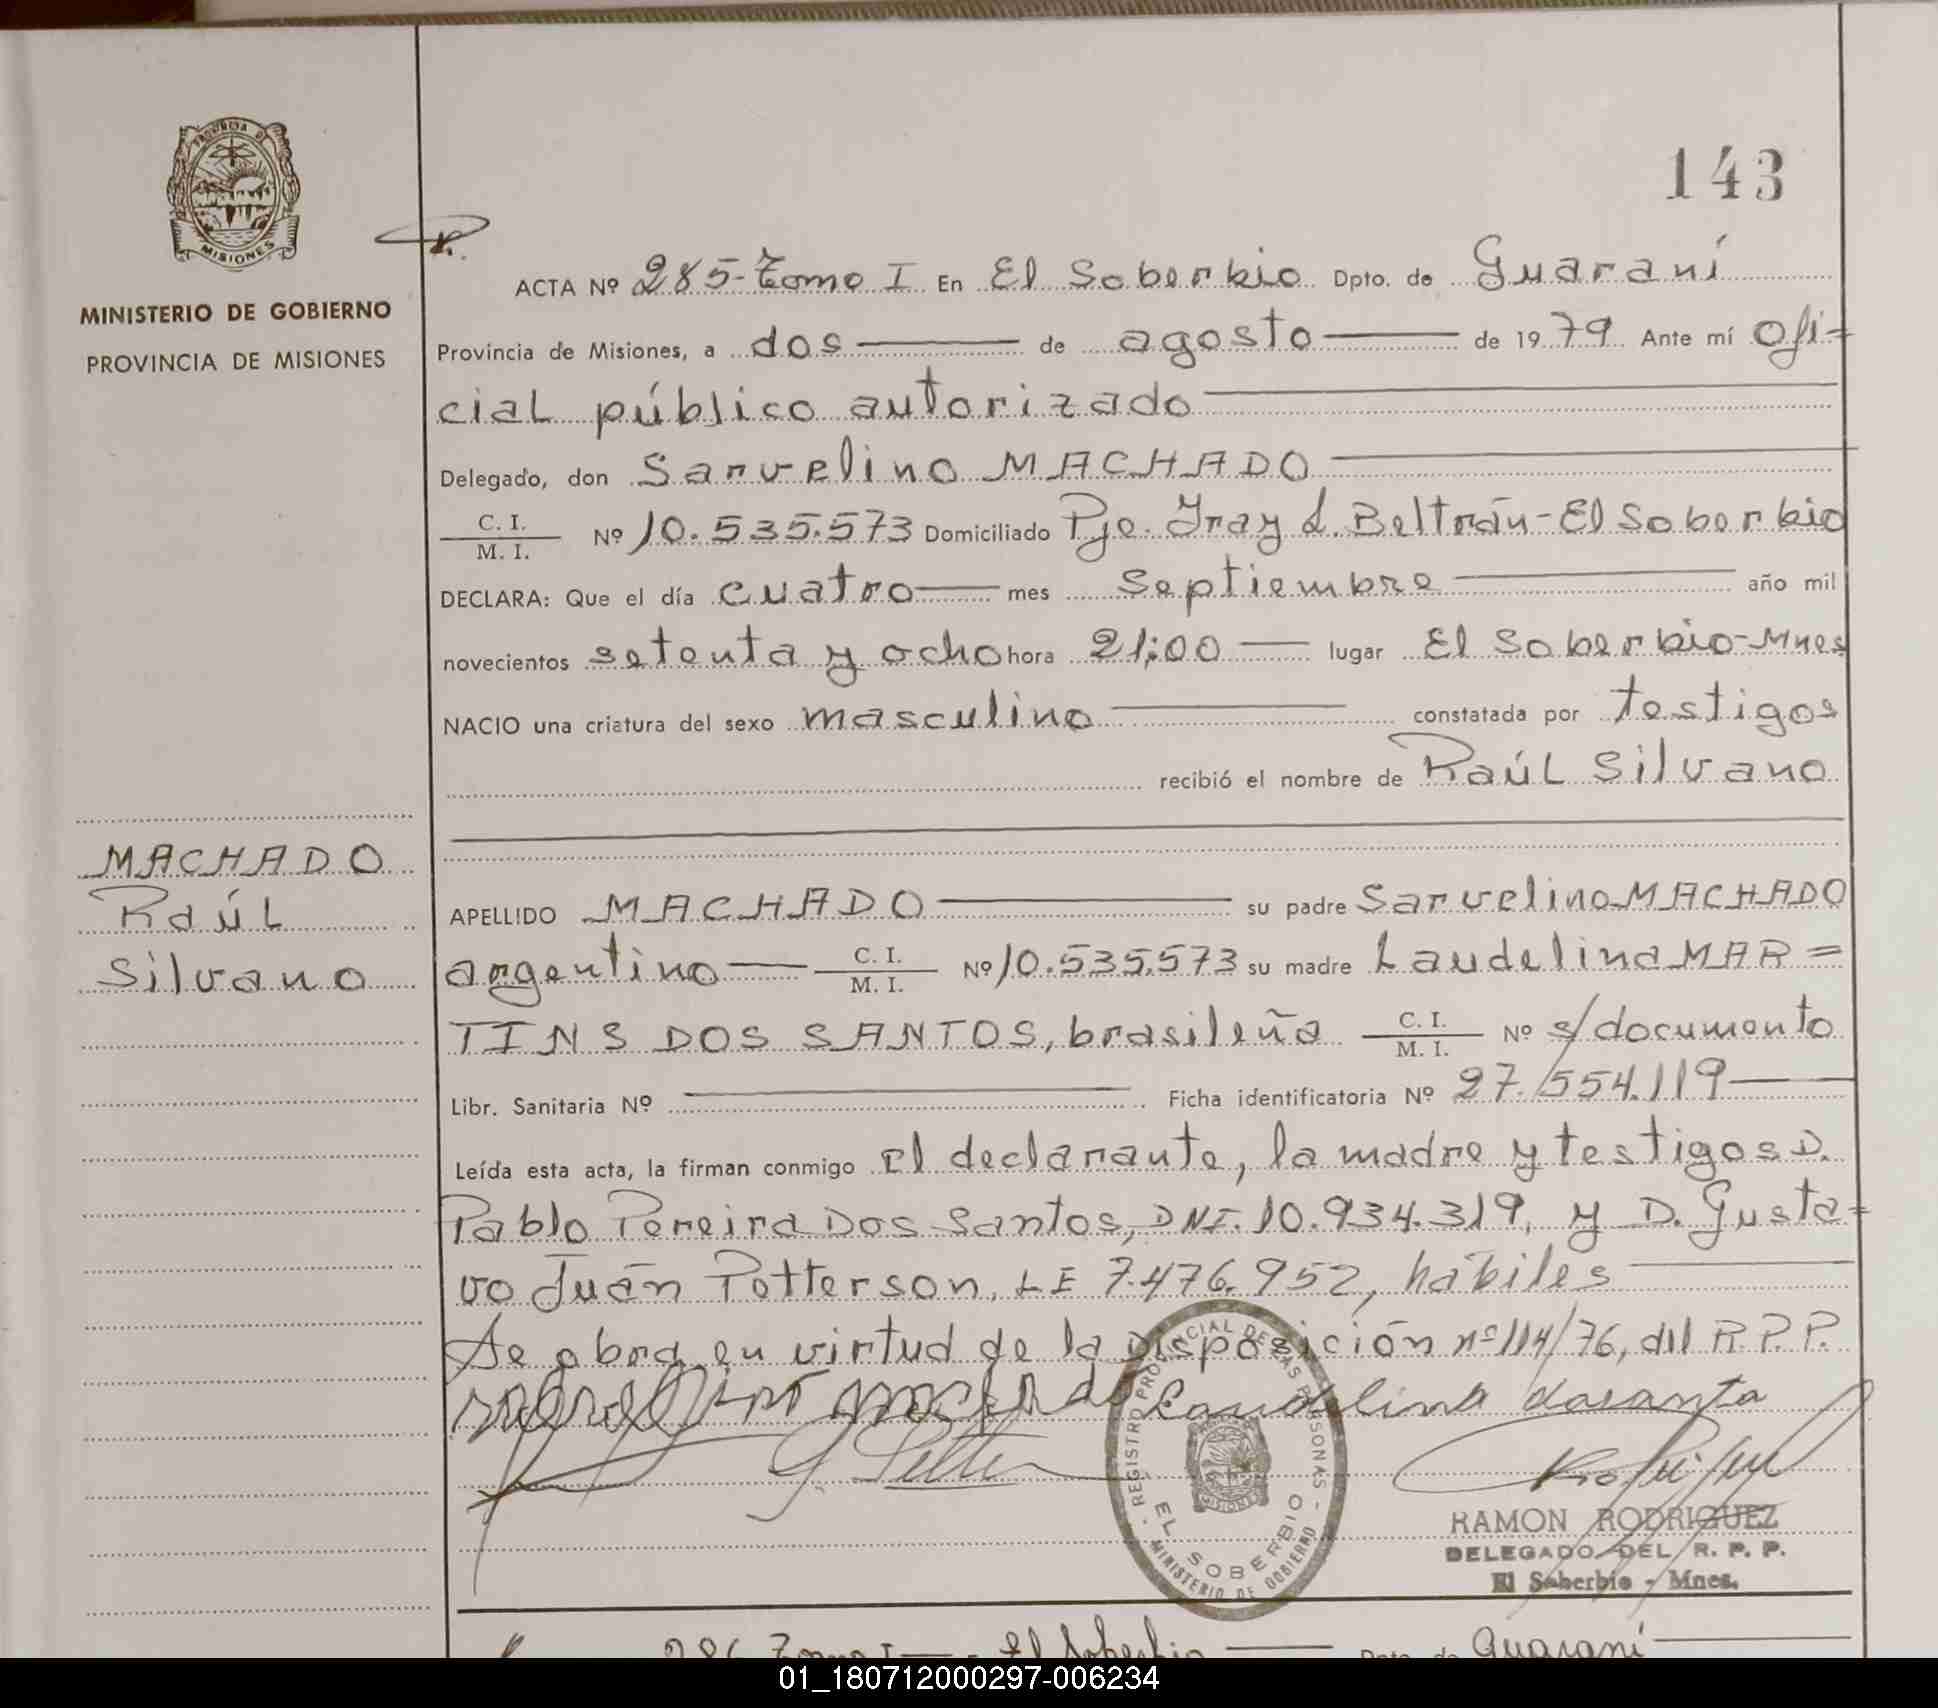 143
PROVINCIA DE
MISIONES
MINISTERIO DE GOBIERNO
PROVINCIA DE MISIONES
ACTA Nº 285-Tomo I En El Soberbio Dpto. de Guaraní
Provincia de Misiones, a dos de agosto de 1979 Ante mí Ofi=
cial público autorizado
Delegado, don Sarvelino MACHADO
C. I.
M. I. Nº 10.535.573 Domiciliado Pje. Fray L. Beltrán-El Soberbio
DECLARA: Que el día cuatro mes septiembre año mil
novecientos setenta y ocho hora 21:00 lugar El Soberbio-Mnes
NACIO una criatura del sexo masculino constatada por testigos
recibió el nombre de Raúl Silvano
MACHADO
Raúl
Silvano
APELLIDO MACHADO su padre Sarvelino MACHADO
argentino C. I.
M. I. Nº 10.535.573 su madre Laudelina MAR=
TINS DOS SANTOS, brasileña C. I.
M. I. Nº s/documento
Libr. Sanitaria Nº Ficha identificatoria Nº 27.554.119
Leída esta acta, la firman conmigo el declarante, la madre y testigos D.
Pablo Pereira Dos Santos, DNI. 10.934.319, y D. Gusta=
vo Juan Potterson, LE 7.476.952, hábiles
Se obra en virtud de la Disposición nº 114/76, del R.P.P.
Laudelina dosanta
REGISTRO PROVINCIAL DE LAS PERSONAS
EL SOBERBIO
MINISTERIO DE GOBIERNO
MISIONES
RAMON RODRIGUEZ
DELEGADO DEL R. P. P.
El Soberbio - Mnes.
286 Tomo I El Soberbio Dpto. de Guaraní
01_180712000297-006234